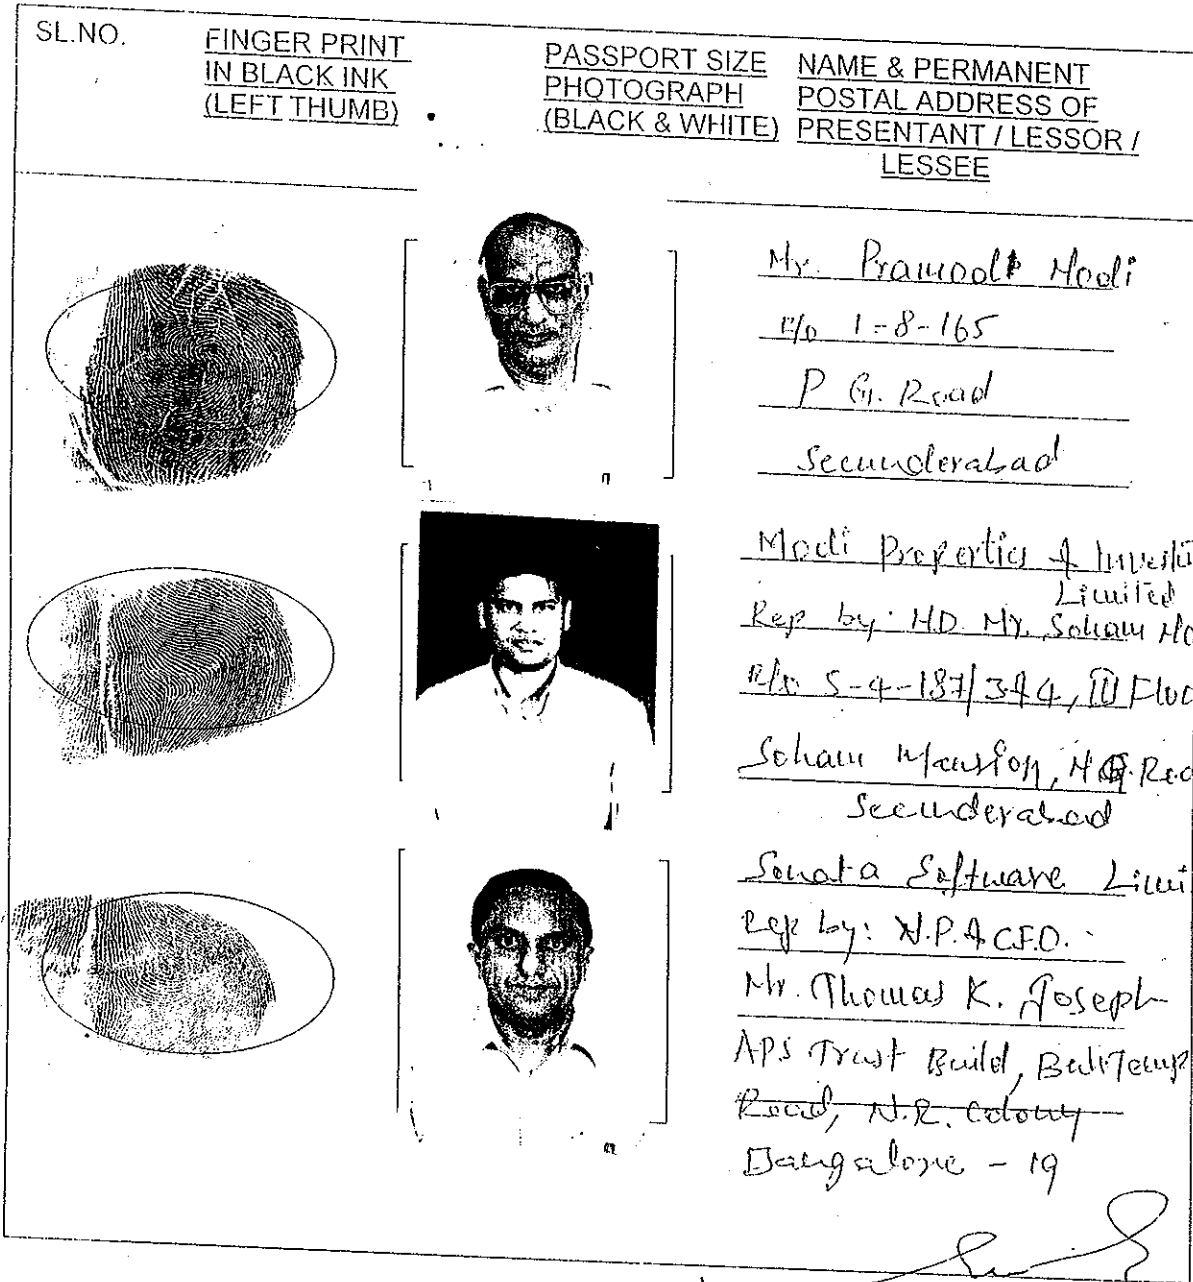 SL.NO.
FINGER PRINT
IN BLACK INK
(LEFT THUMB)
PASSPORT SIZE
PHOTOGRAPH
(BLACK & WHITE)
NAME & PERMANENT
POSTAL ADDRESS OF
PRESENTANT / LESSOR /
LESSEE
Mr. Pramod Modi
R/o 1-8-165
P G. Road
Secunderabad
Modi Properties & Investm
Limited
Rep by: M.D. Mr. Soham Mo
R/o. 5-4-187/3&4, III Floo
Soham Mansion, M.G. Roa
Secunderabad
Sonata Software Limi
Rep by: V.P. & C.F.O.
Mr. Thomas K. Joseph
APS Trust Build, Bull Temp
Road, N.R. Colony
Bangalore - 19